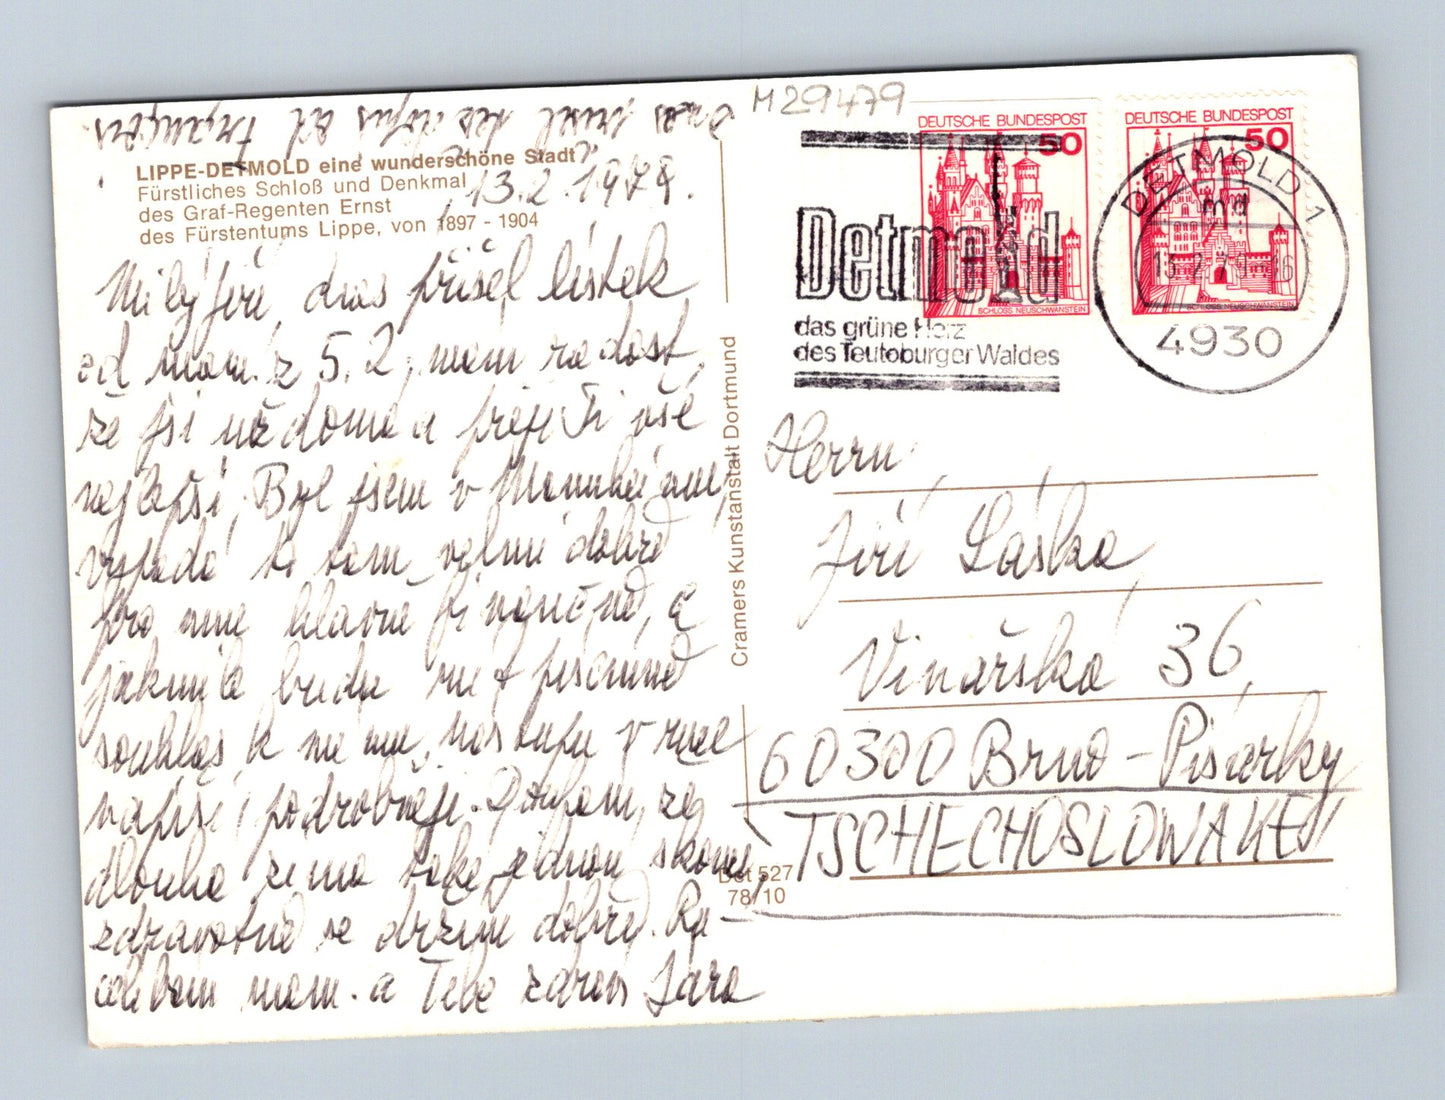 M29479
DEUTSCHE BUNDESPOST
50
SCHLOSS NEUSCHWANSTEIN
DEUTSCHE BUNDESPOST
50
SCHLOSS NEUSCHWANSTEIN
Detmold
das grüne Herz
des Teutoburger Waldes
DETMOLD 1
md
4930
dnes přišel
LIPPE-DETMOLD eine wunderschöne Stadt
Fürstliches Schloß und Denkmal
des Graf-Regenten Ernst
des Fürstentums Lippe, von 1897 - 1904
13.2.1979.
Milý Jiří, dnes přišel lístek
od mam. z 5.2, mám radost,
že jsi už doma a přeji Ti vše
nejlepší. Byl jsem v Mannheimu,
vypadá to tam velmi dobře
pro mne hlavně finančně, a
jakmile budu mít písemně
souhlas k mému nástupu v ruce
napíši podrobněji. Doufám, že
dlouhá zima také jednou skončí,
zdravotně se držím dobře. Ru-
celibám mam. a Tebe zdraví Jára
Cramers Kunstanstalt Dortmund
Det 527
78/10
Herrn
Jiří Láska,
Vinařská 36,
60300 Brno - Pisárky
TSCHECHOSLOWAKEI